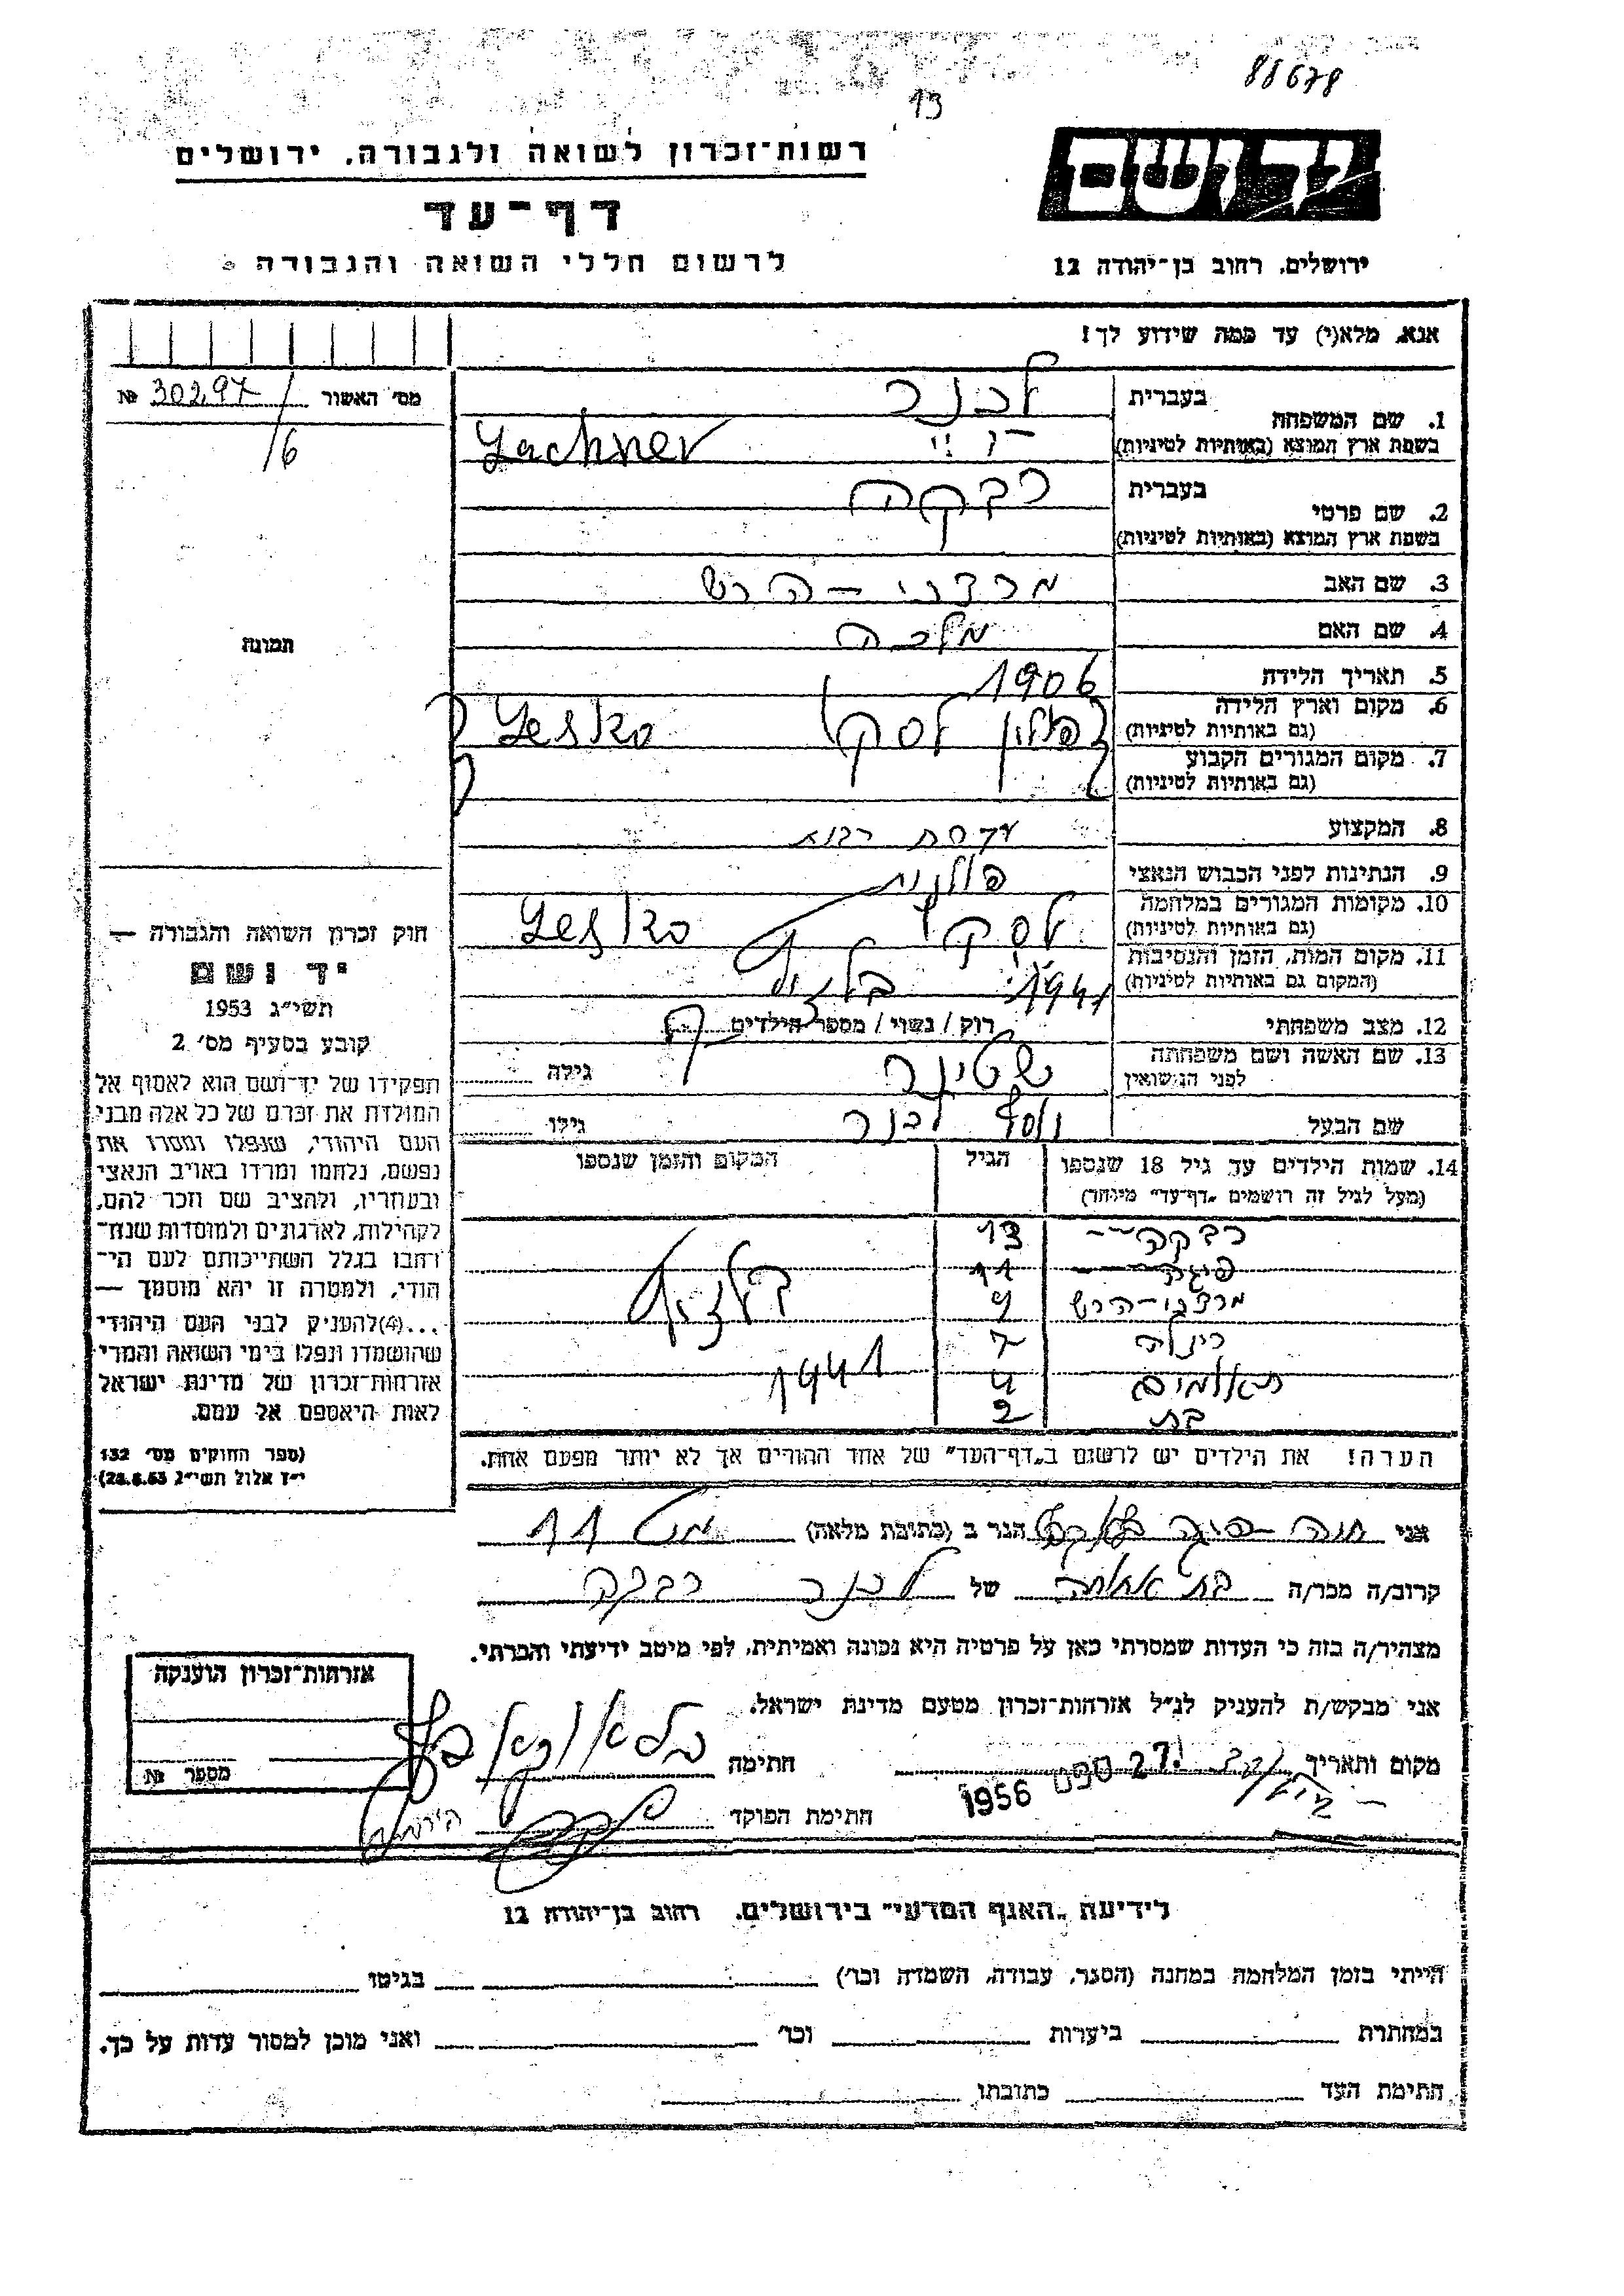 88678
13
רשות-זכרון לשואה ולגבורה, ירושלים
דף-עד
לרשום חללי השואה והגבורה
יד ושם
ירושלים, רחוב בן-יהודה 12
אנא, מלא(י) עד כמה שידוע לך!
מס' האשור № 30297/
/6
תמונה
חוק זכרון השואה והגבורה —
יד ושם
תשי"ג 1953
קובע בסעיף מס' 2
תפקידו של יד-ושם הוא לאסוף אל
המולדת את זכרם של כל אלה מבני
העם היהודי, שנפלו ומסרו את
נפשם, נלחמו ומרדו באויב הנאצי
ובעוזריו, ולהציב שם וזכר להם,
לקהילות, לארגונים ולמוסדות שנח-
רבו בגלל השתייכותם לעם הי-
הודי, ולמטרה זו יהא מוסמך —
...(4) להעניק לבני העם היהודי
שהושמדו ונפלו בימי השואה והמרי
אזרחות-זכרון של מדינת ישראל
לאות היאספם אל עמם.
(ספר החוקים מס' 132
י"ז אלול תשי"ג 28.8.53)
1. שם המשפחה בעברית לכנר
בשפת ארץ המוצא (באותיות לטיניות) Lachner
2. שם פרטי בעברית רבקה
בשפת ארץ המוצא (באותיות לטיניות)
3. שם האב מרדכי - הרש
4. שם האם מלכה
5. תאריך הלידה 1906
6. מקום וארץ הלידה פולין לסקו Lesko
(גם באותיות לטיניות)
7. מקום המגורים הקבוע
(גם באותיות לטיניות)
8. המקצוע עקרת
9. הנתינות לפני הכבוש הנאצי פולנית
10. מקומות המגורים במלחמה לסקו Lesko
(גם באותיות לטיניות)
11. מקום המות, הזמן והנסיבות 1941
(המקום גם באותיות לטיניות)
12. מצב משפחתי רוק / נשוי / מספר הילדים
13. שם האשה ושם משפחתה שטינר גילה
לפני הנישואין
שם הבעל לכנר גילו
14. שמות הילדים עד גיל 18 שנספו הגיל המקום והזמן שנספו
(מעל לגיל זה רושמים "דף-עד" מיוחד)
רבקה 13
פיגה 11
מרדכי-הרש 9
7
תאומים 4 1941
בת 2
הערה! את הילדים יש לרשום ב"דף-העד" של אחד ההורים אך לא יותר מפעם אחת.
אני חנה - פיגה הגר ב (כתובת מלאה) 11
קרוב/ה מכר/ה בת אחותה של לכנר רבקה
מצהיר/ה בזה כי העדות שמסרתי כאן על פרטיה היא נכונה ואמיתית, לפי מיטב ידיעתי והכרתי.
אני מבקש/ת להעניק לנ"ל אזרחות-זכרון מטעם מדינת ישראל.
מקום ותאריך 27 ספט 1956 חתימה
חתימת הפוקד
אזרחות-זכרון הוענקה
מספר №
לידיעת "האגף המדעי" בירושלים, רחוב בן-יהודה 12
הייתי בזמן המלחמה במחנה (הסגר, עבודה, השמדה וכו') בגיטו
במחתרת ביערות וכו' ואני מוכן למסור עדות על כך.
חתימת העד כתובתו